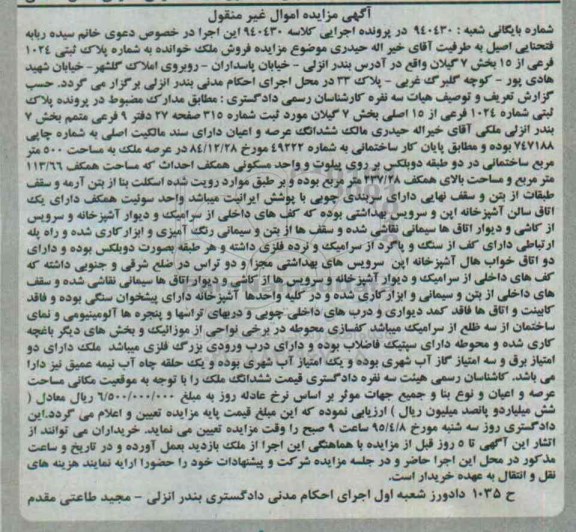 آگهی مزایده اموال غیر منقول
شماره بایگانی شعبه : ۹۴۰۴۳۰ در پرونده اجرایی کلاسه ۹۴۰۴۳۰ این اجرا در خصوص دعوی خانم سیده ربابه
فتحنایی اصیل به طرفیت آقای خیر اله حیدری موضوع مزایده فروش ملک خوانده به شماره پلاک ثبتی ۱۰۲۴
فرعی از ۱۵ بخش ۷ گیلان واقع در آدرس بندر انزلی - خیابان پاسداران - روبروی املاک گلشهر- خیابان شهید
هادی پور - کوچه گلبرگ غربی - پلاک ۳۳ در محل اجرای احکام مدنی بندر انزلی برگزار می گردد. حسب
گزارش تعریف و توصیف هیات سه نفره کارشناسان رسمی دادگستری : مطابق مدارک مضبوط در پرونده پلاک
ثبتی شماره ۱۰۲۴ فرعی از ۱۵ اصلی بخش ۷ گیلان مورد ثبت شماره ۳۱۵ صفحه ۲۷ دفتر ۹ فرعی متمم بخش ۷
بندر انزلی ملکی آقای خیراله حیدری مالک ششدانگ عرصه و اعیان دارای سند مالکیت اصلی به شماره چاپی
۷۴۷۱۸۸ بوده و مطابق پایان کار ساختمانی به شماره ۴۹۲۲۲ مورخ ۸۴/۱۲/۲۸ در عرصه ملک به مساحت ۵۰۰ متر
مربع ساختمانی در دو طبقه دوبلکس بر روی پیلوت و واحد مسکونی همکف احداث که مساحت همکف ۱۱۳/۶۶
متر مربع و مساحت بالای همکف ۲۳۷/۲۸ متر مربع بوده و بر طبق موارد رویت شده اسکلت بنا از بتن آرمه و سقف
طبقات از بتن و سقف نهایی دارای سربندی چوبی با پوشش ایرانیت میباشد واحد سونیت همکف دارای یک
اتاق سالن آشپزخانه اپن و سرویس بهداشتی بوده که کف های داخلی از سرامیک و دیوار آشپزخانه و سرویس
از کاشی و دیوار اتاق ها سیمانی نقاشی شده و سقف ها از بتن و سیمانی رنگ آمیزی و ابزارکاری شده و راه پله
ارتباطی دارای کف از سنگ و پاگرد از سرامیک و نرده فلزی داشته و هر طبقه بصورت دوبلکس بوده و دارای
دو اتاق خواب هال آشپزخانه اپن سرویس های بهداشتی مجزا و دو تراس در ضلع شرقی و جنوبی داشته که
کف های داخلی از سرامیک و دیوار آشپزخانه و سرویس ها از کاشی و دیوار اتاق ها سیمانی نقاشی شده و سقف
های داخلی از بتن و سیمانی و ابزار کاری شده و در کلیه واحدها آشپزخانه دارای پیشخوان سنگی بوده و فاقد
کابینت و اتاق ها فاقد کمد دیواری و درب های داخلی چوبی و دربهای تراسها و پنجره ها آلومینیومی و نمای
ساختمان از سه ظلع از سرامیک میباشد کفسازی محوطه در برخی نواحی از موزائیک و بخش های دیگر باغچه
کاری شده و محوطه دارای سپتیک فاضلاب بوده و دارای درب ورودی بزرگ فلزی میباشد. ملک دارای دو
امتیاز برق و سه امتیاز گاز آب شهری بوده و یک امتیاز آب شهری بوده و یک حلقه چاه آب نیمه عمیق نیز دارا
می باشد. کاشناسان رسمی هیئت سه نفره دادگستری قیمت ششدانگ ملک را با توجه به موقعیت مکانی مساحت
عرصه و اعیان و نوع بنا و جمیع جهات موثر بر اساس نرخ عادله روز به مبلغ ۶/۵۰۰/۰۰۰/۰۰۰ ریال معادل (
شش میلیاردو پانصد میلیون ریال ) ارزیابی نموده که این مبلغ قیمت پایه مزایده تعیین و اعلام می گردد.این
دادگستری روز سه شنبه مورخ ۹۵/۴/۸ ساعت ۹ صبح را وقت مزایده تعیین می نماید. خریداران می توانند از
انتشار این آگهی تا ۵ روز قبل از مزایده با هماهنگی این اجرا از ملک بازدید بعمل آورده و در تاریخ و ساعت
مذکور در محل این اجرا حاضر و در جلسه مزایده شرکت و پیشنهادات خود را حضورا ارایه نمایند هزینه های
نقل و انتقال به عهده خریدار است.
ح ۱۰۳۵ دادورز شعبه اول اجرای احکام مدنی دادگستری بندر انزلی - مجید طاعتی مقدم